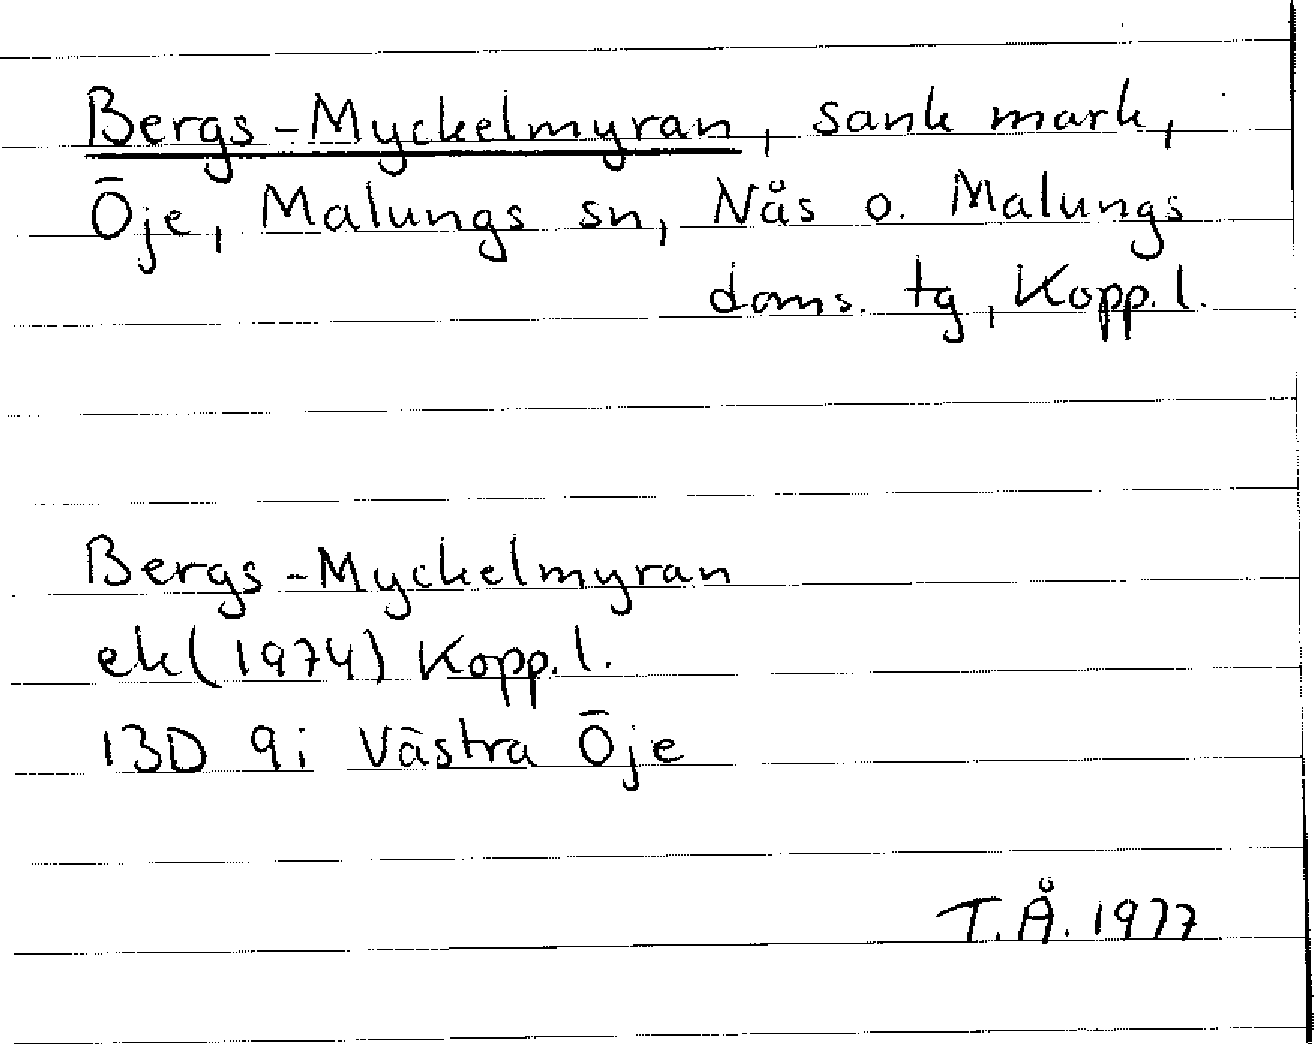 Bergs-Myckelmyran, sank mark,
Öje, Malungs sn, Nås o. Malungs
doms. tg, Kopp.l.
Bergs-Myckelmyran
ek (1974) Kopp.l.
13D 9i Västra Öje
T.Å. 1977